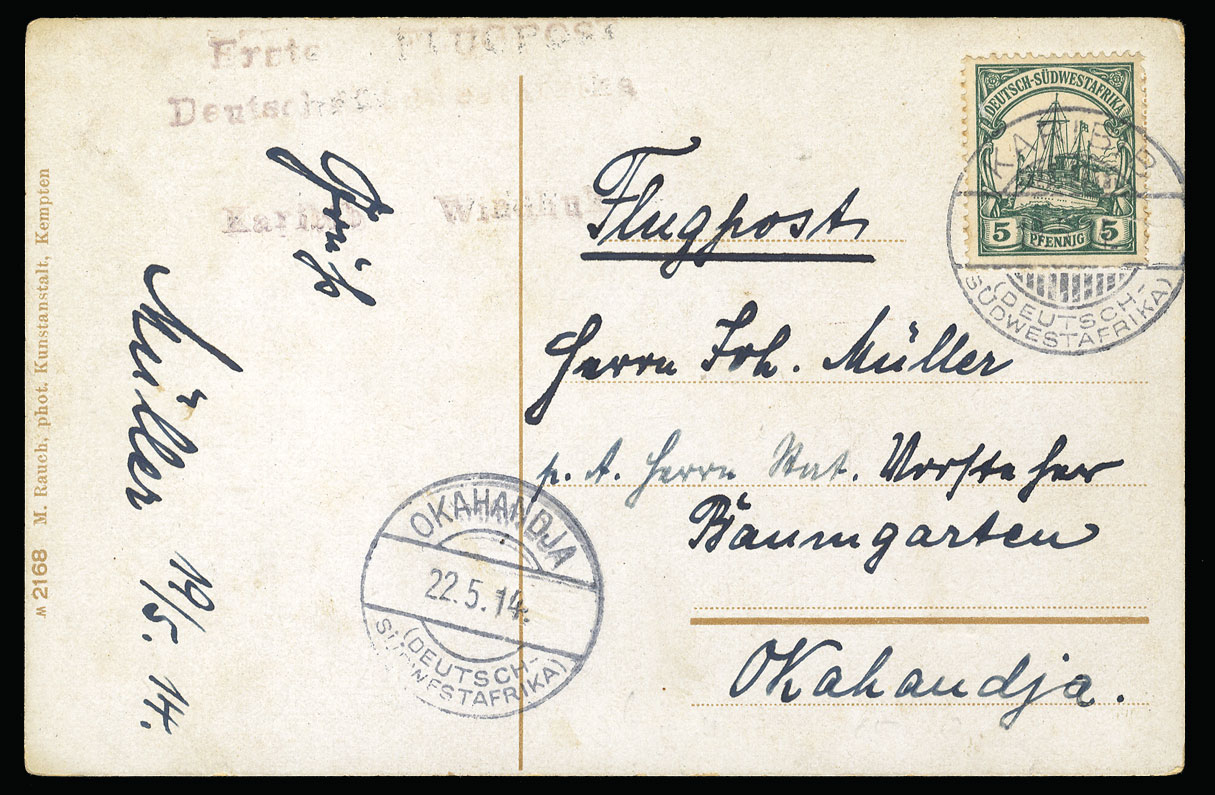 Erste FLUGPOST
Deutschsüdwestafrika
Karibib Windhuk
Gruß
Müller 19/5. 14.
№ 2168 M. Rauch, phot. Kunstanstalt, Kempten
DEUTSCH-SÜDWESTAFRIKA
5 PFENNIG 5
KARIBIB
(DEUTSCH-
SÜDWESTAFRIKA)
Flugpost
Herrn Joh. Müller
p. A. Herrn Stat. Vorsteher
Baumgarten
Okahandja.
OKAHANDJA
22.5.14.
(DEUTSCH-
SÜDWESTAFRIKA)